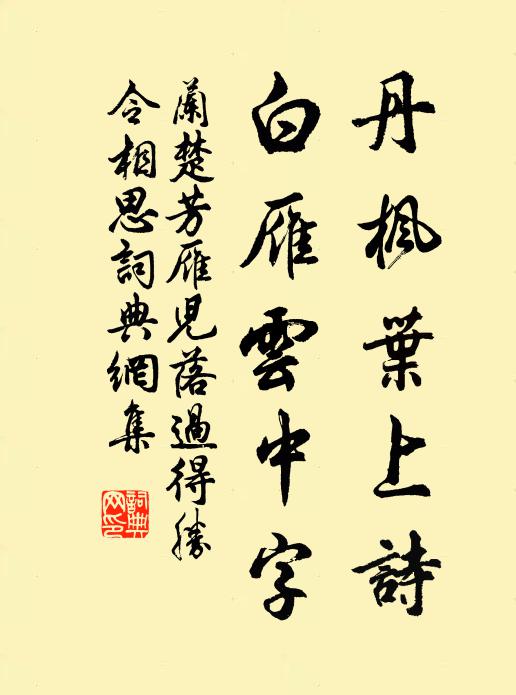 丹楓葉上詩
白雁雲中字
蘭楚芳雁兒落過得勝
令相思詞典網集
詞典网印